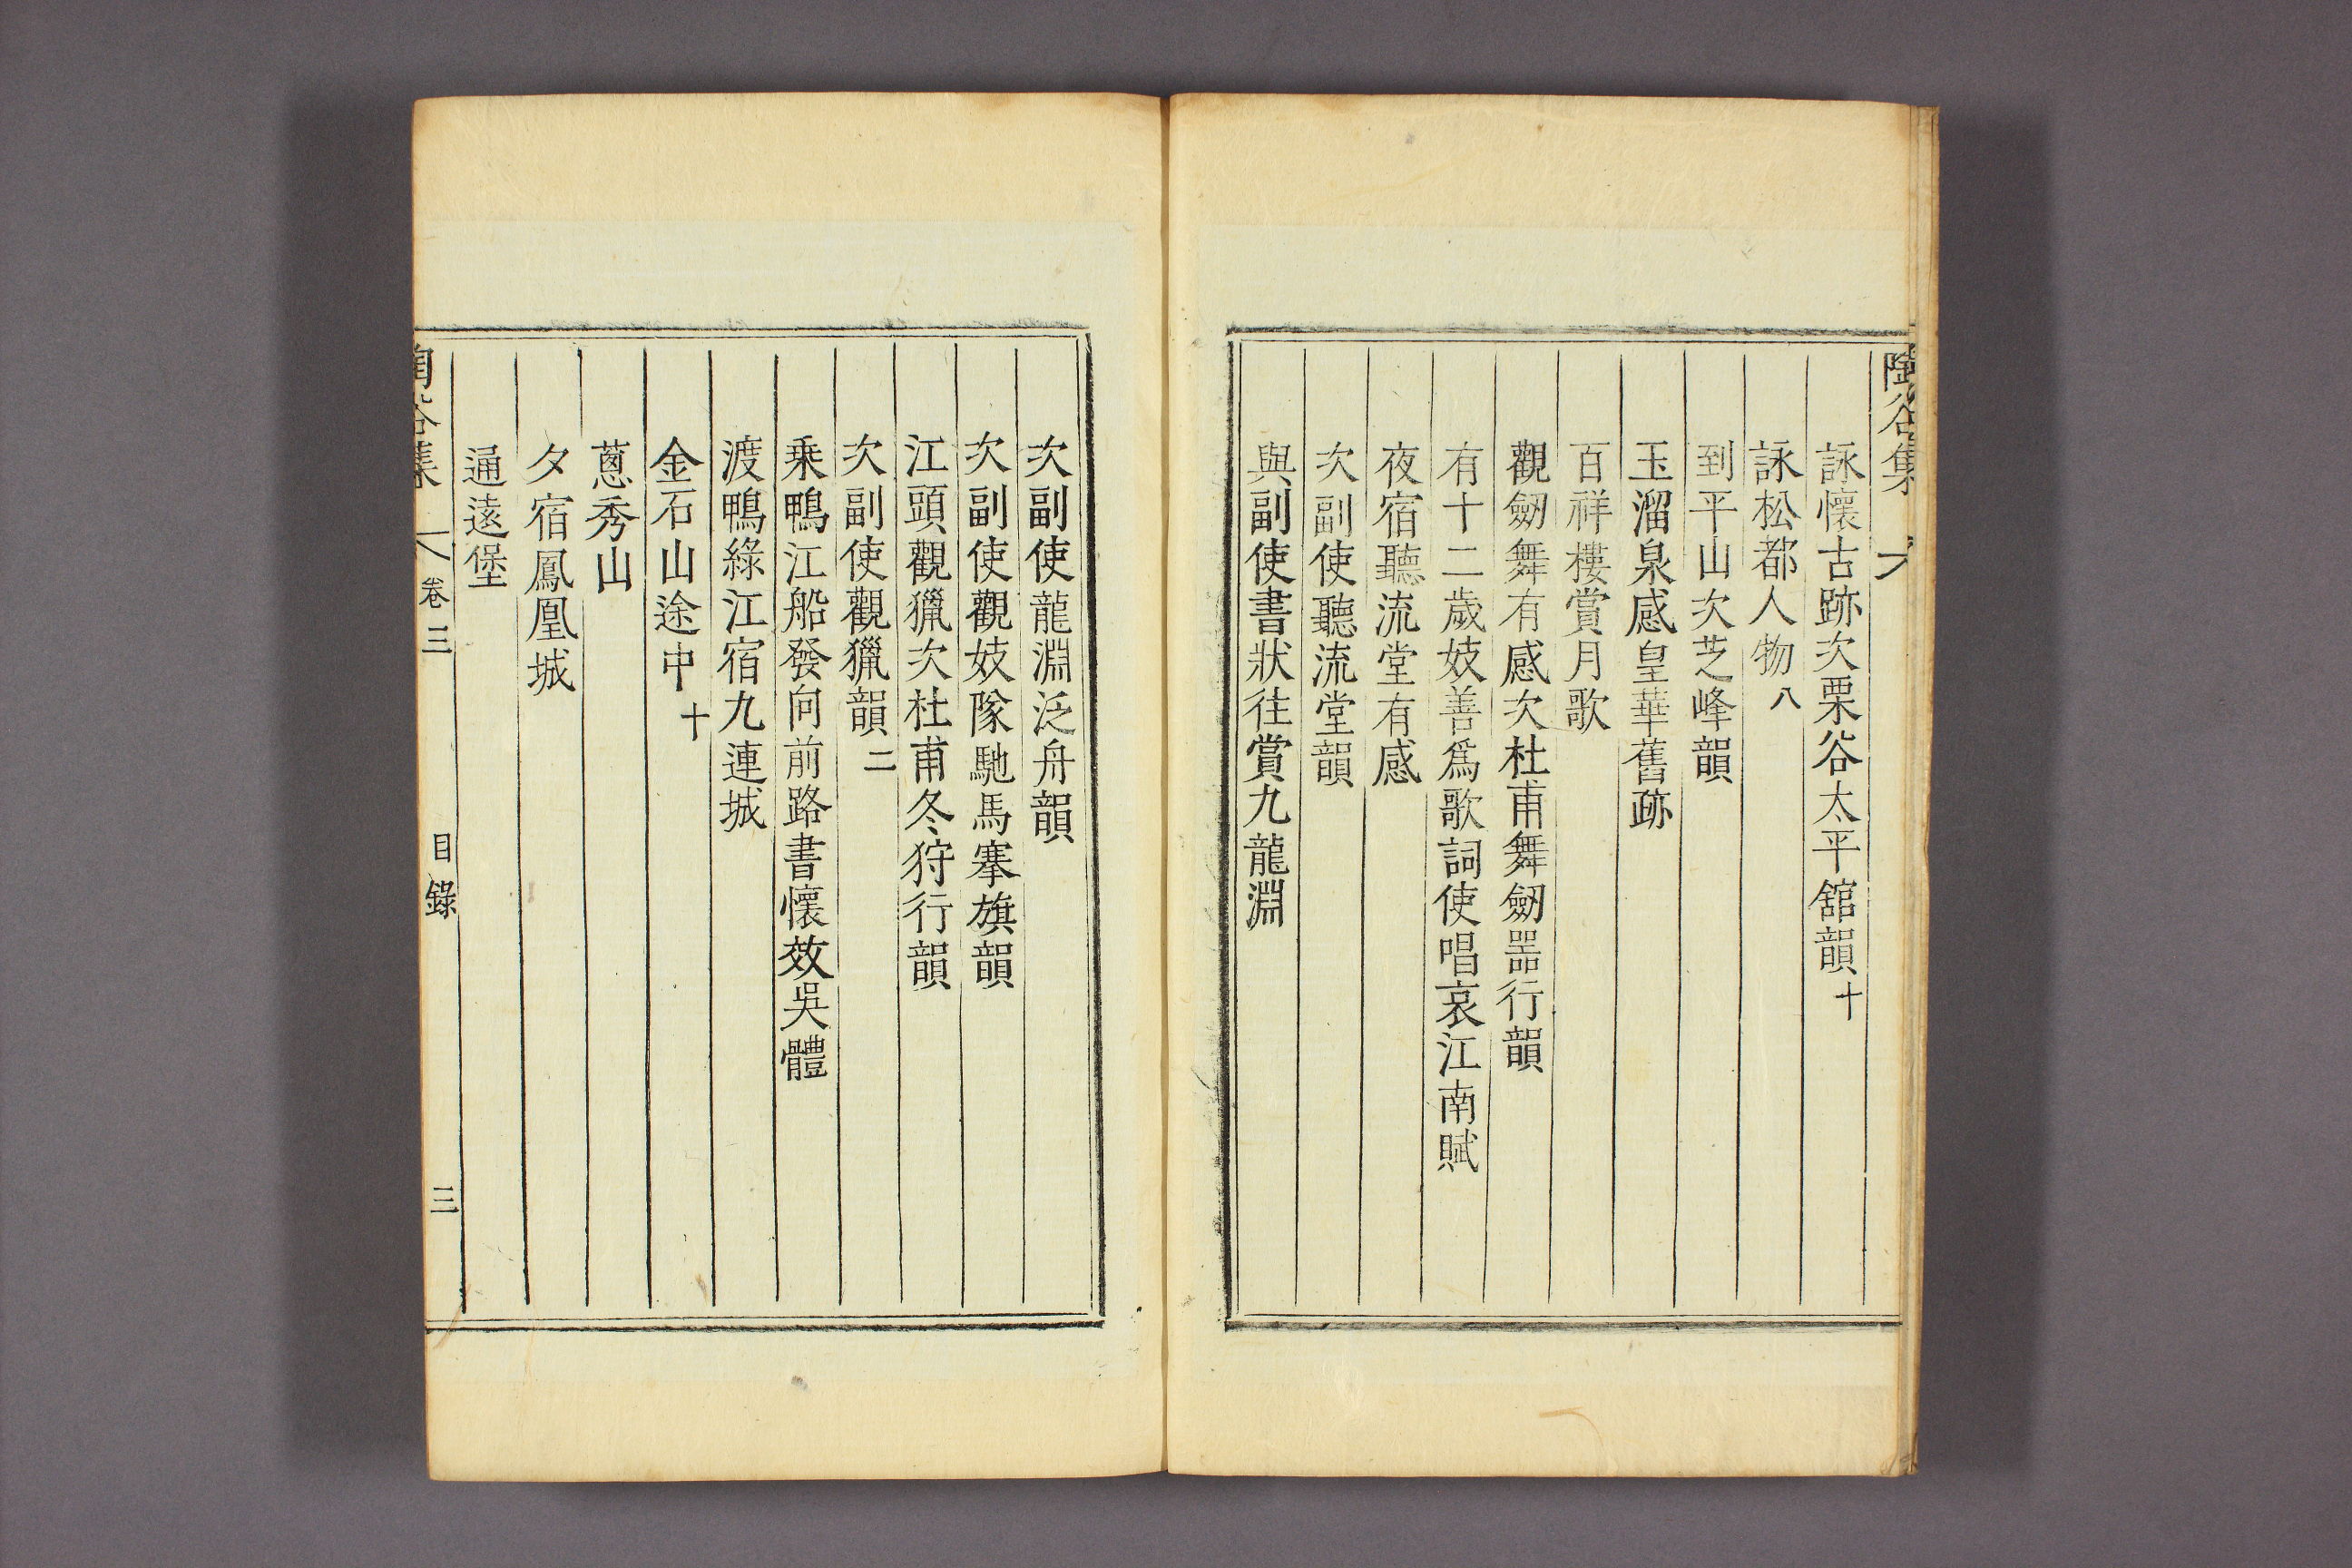 陶谷集
詠懷古跡次栗谷太平舘韻十
詠松都人物八
到平山次芝峰韻
玉溜泉感皇華舊跡
百祥樓賞月歌
觀劒舞有感次杜甫舞劒噐行韻
有十二歲妓善爲歌詞使唱哀江南賦
夜宿聽流堂有感
次副使聽流堂韻
與副使書狀往賞九龍淵
次副使龍淵泛舟韻
次副使觀妓隊馳馬搴旗韻
江頭觀獵次杜甫冬狩行韻
次副使觀獵韻二
乗鴨江船發向前路書懷效吳體
渡鴨綠江宿九連城
金石山途中十
蔥秀山
夕宿鳳凰城
通遠堡
陶谷集 卷三 目錄 三